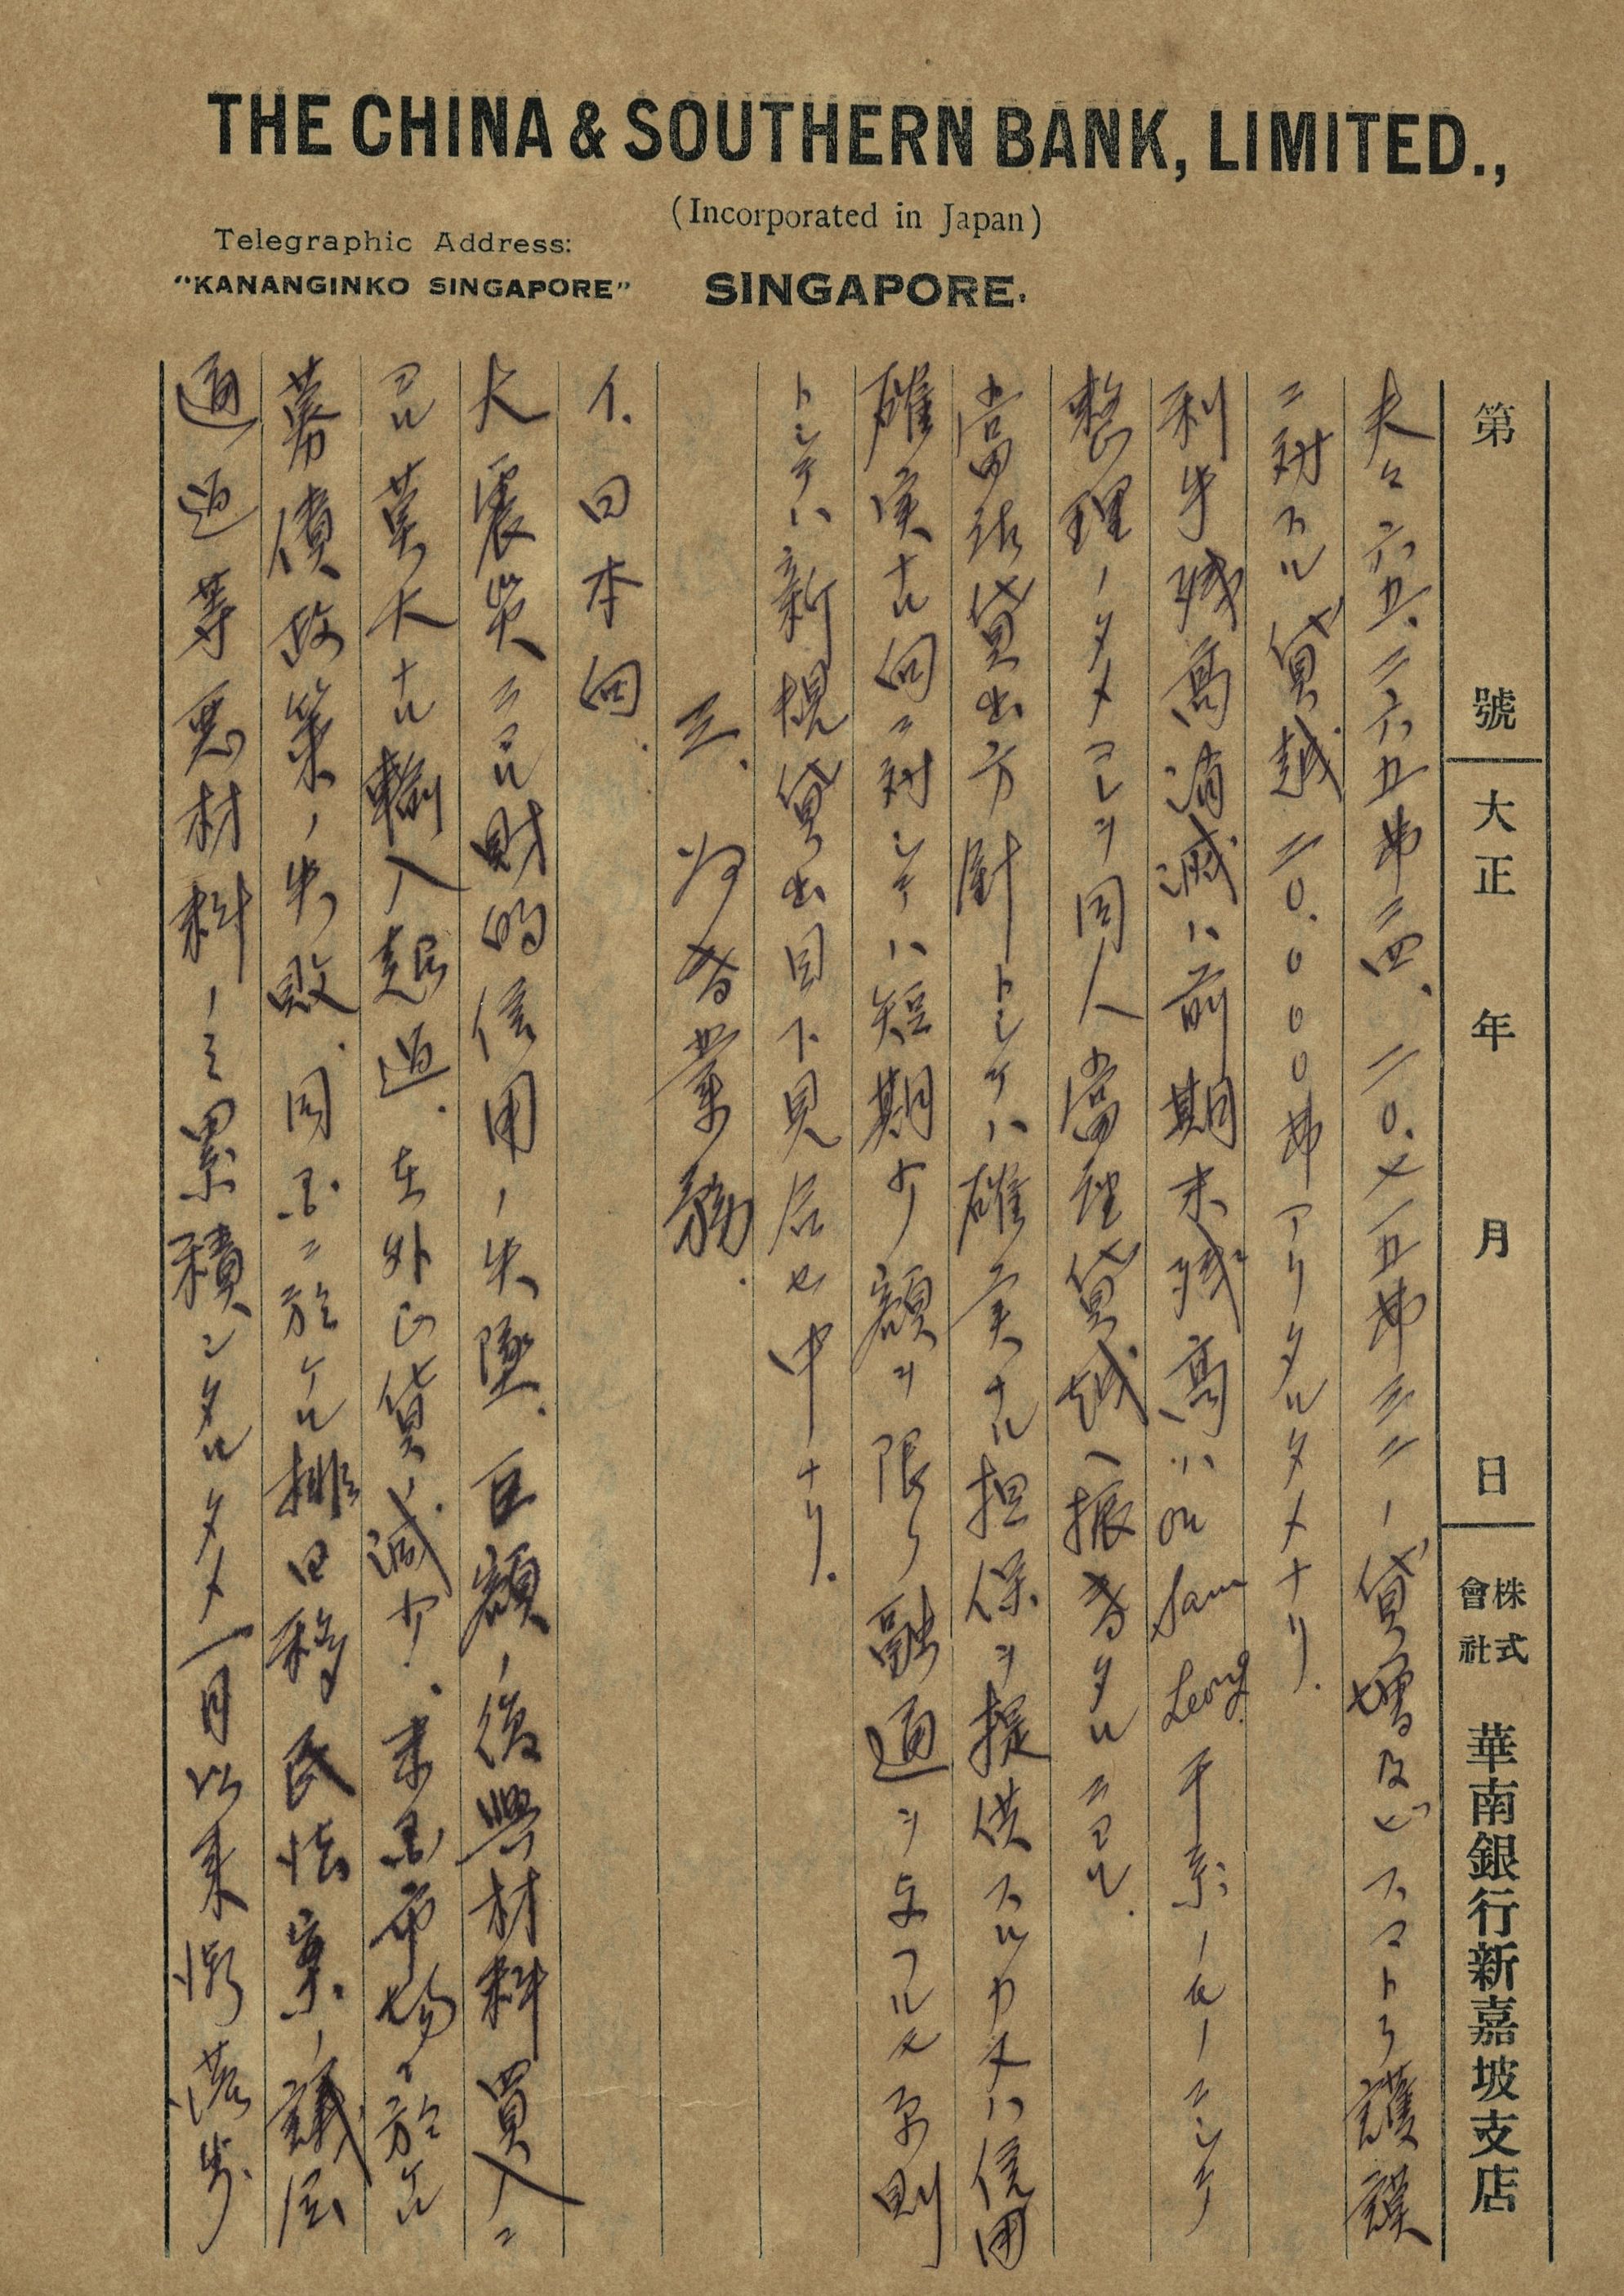 THE CHINA & SOUTHERN BANK, LIMITED.,
(Incorporated in Japan)
Telegraphic Address:
"KANANGINKO SINGAPORE"
SINGAPORE.
第 號 大正 年 月 日 株式會社 華南銀行新嘉坡支店
夫々六五.二六五弗二四. 二〇.七一五弗三二ノ貸増及ビスマトラ護謨
ニ対スル貸越二〇.〇〇〇弗アリタルタメナリ.
利手残高消滅ハ前期末残高ハ On Sam Leong 干系ノモノニシテ
整理ノタメコレヲ同人當座貸越ヘ振替タルニヨル.
當店貸出方針トシテハ確実ナル担保ヲ提供スルカ又ハ信用
確実ナル向ニ対シテハ短期少額ヲ限リ融通ヲ与フルヲ原則
トシテハ新規貸出目下見合セ中ナリ.
三. 為替業務.
イ.日本向.
大震災ニヨル財的信用ノ失墜.巨額ノ復興材料買入ニ
ヨル莫大ナル輸入超過.在外正貨ノ減少.米国市場ニ於ケル
募債政策ノ失敗.同国ニ於ケル排日移民法案ノ議会
通過等悪材料ノミ累積シタルタメ一月以来漸落歩